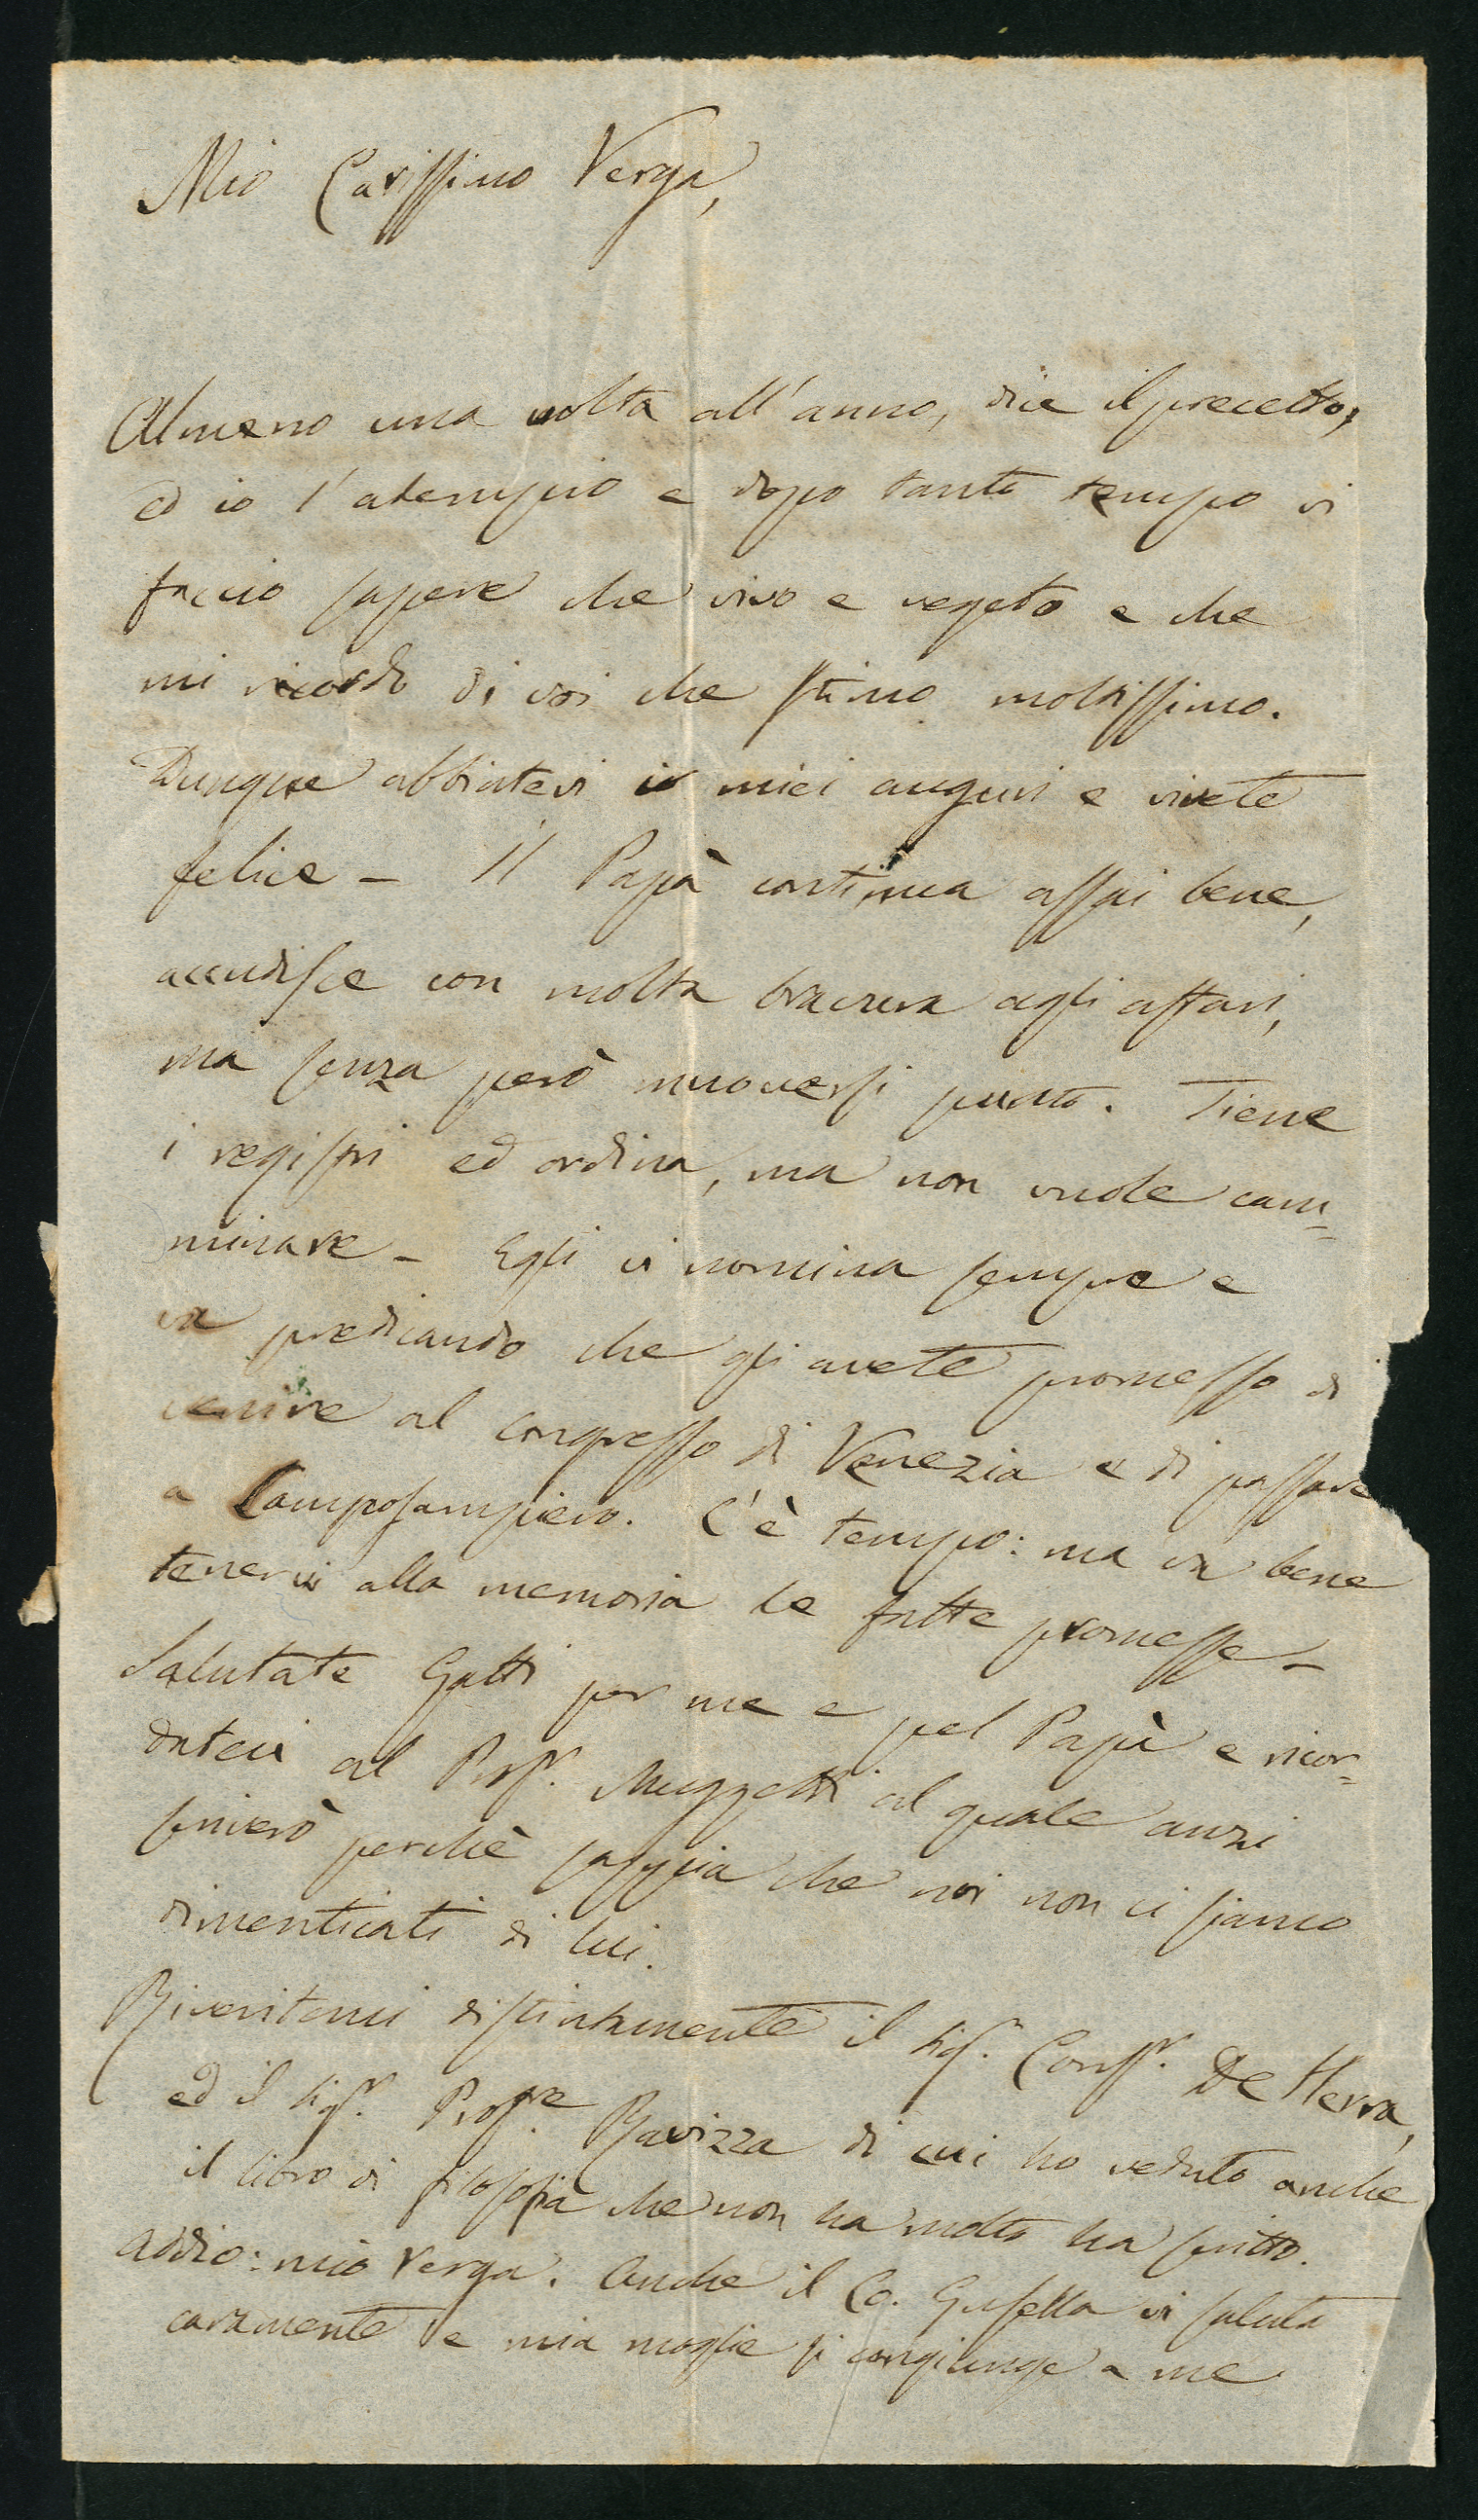 Mio Carissimo Verga,
Almeno una volta all'anno, dice il precetto,
ed io l'adempio e dopo tanto tempo vi
faccio sapere che vivo e vegeto e che
mi ricordo di voi che stimo moltissimo.
Dunque abbiatevi i miei auguri e vivete
felice - Il Papà continua assai bene,
accudisce con molta bravura agli affari,
ma senza però muoversi punto. Tiene
i registri ed ordina, ma non vuole cam=
minare - Egli vi nomina sempre e
va predicando che gli avete promesso di
venire al congresso di Venezia e di passare
a Camposampiero. C'è tempo: ma va bene
tenervi alla memoria le fatte promesse -
Salutate Gatti per me e pel Papà e ricor=
dateci al Prof.r Muzzetti al quale anzi
scriverò perchè sappia che noi non ci siamo
dimenticati di lui.
Riveritemi distintamente il Sig.r Cons.r De Herra,
ed il Sig.r Prof.re Ravizza di cui ho veduto anche
il libro di filosofia che non ha molto ha scritto.
Addio: mio Verga. Anche il Co. Gusella vi saluta
caramente e mia moglie si congiunge a me